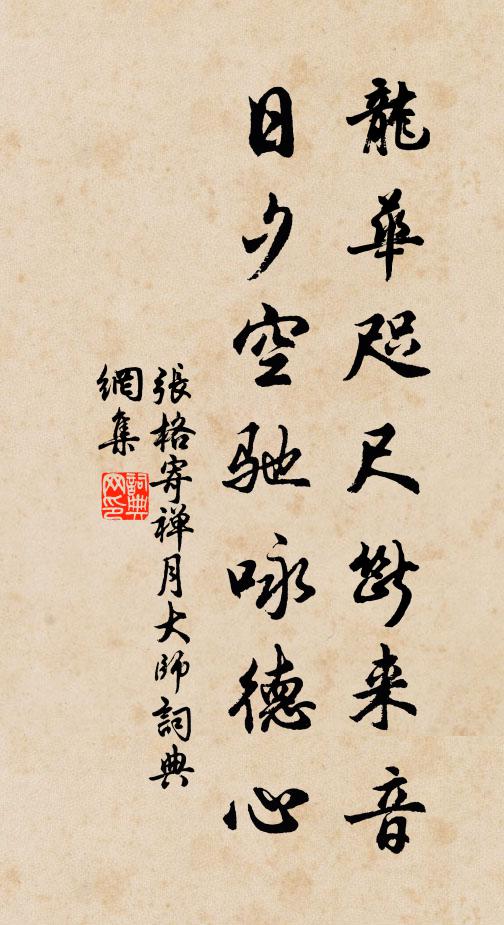 龍華咫尺斷来音
日夕空馳咏德心
張格寄禅月大師詞典
網集
詞典網印